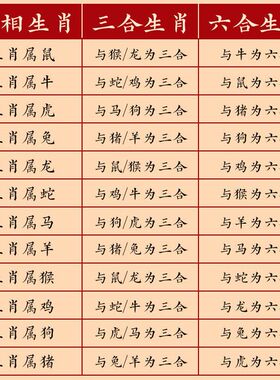 相生肖 三合生肖 六合生
肖属鼠 与猴/龙为三合 与牛为六
肖属牛 与蛇/鸡为三合 与鼠为六
肖属虎 与马/狗为三合 与猪为六
肖属兔 与猪/羊为三合 与狗为六
肖属龙 与鼠/猴为三合 与鸡为六
肖属蛇 与鸡/牛为三合 与猴为六
肖属马 与狗/虎为三合 与羊为六
肖属羊 与猪/兔为三合 与马为六
肖属猴 与鼠/龙为三合 与蛇为六
肖属鸡 与蛇/牛为三合 与龙为六
肖属狗 与虎/马为三合 与兔为六
肖属猪 与兔/羊为三合 与虎为六